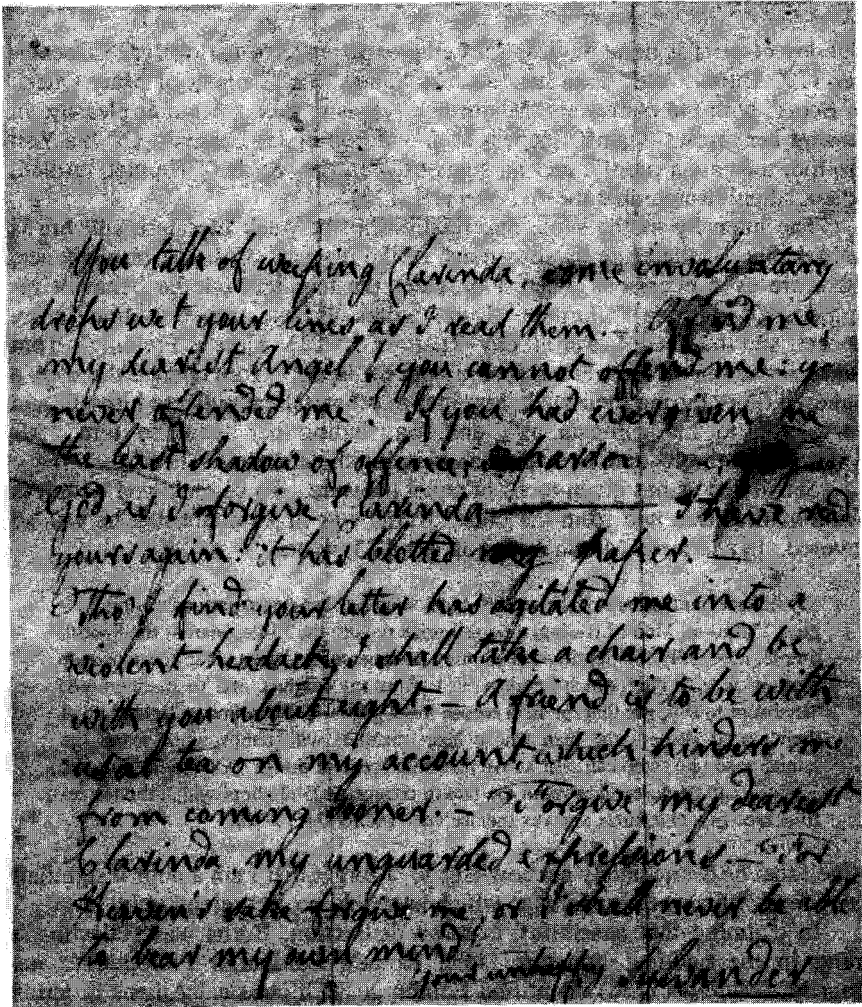 You talk of weeping Clarinda, some involuntary
drops wet your lines as I read them. — Offend me,
my dearest Angel! you cannot offend me: you
never offended me! If you had ever given me
the least shadow of offence, so pardon
God, as I forgive Clarinda ——— I have read
yours again: it has blotted my paper. —
Tho' I find your letter has agitated me into a
violent headach, I shall take a chair and be
with you about eight. — A friend is to be with
us at tea on my account, which hinders me
from coming sooner. — Forgive, my dearest
Clarinda, my unguarded expressions — For
Heaven's sake forgive me, or I shall never be able
to bear my own mind!
your unhappy Sylvander